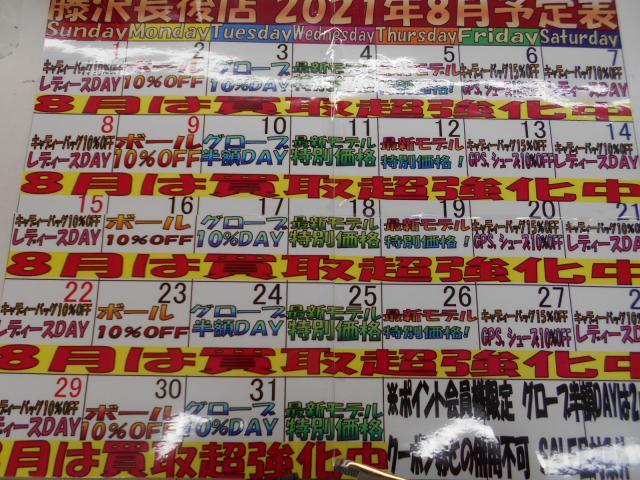 藤沢長後店 2021年8月予定表
Sunday Monday Tuesday Wednesday Thursday Friday Saturday
1 2 3 4 5 6 7
キャディーバッグ10%OFF ボール グローブ 最新モデル 最新モデル キャディーバッグ15%OFF キャディーバッグ10%OFF
レディースDAY 10%OFF 10%OFF 特別価格 特別価格! GPS、シューズ10%OFF レディースDAY
8月は買取超強化中
8 9 10 11 12 13 14
キャディーバッグ10%OFF ボール グローブ 最新モデル 最新モデル キャディーバッグ15%OFF キャディーバッグ10%OFF
レディースDAY 10%OFF 半額DAY 特別価格! 特別価格! GPS、シューズ10%OFF レディースDAY
8月は買取超強化中
15 16 17 18 19 20 21
キャディーバッグ10%OFF ボール グローブ 最新モデル 最新モデル キャディーバッグ15%OFF キャディーバッグ10%
レディースDAY 10%OFF 10%DAY 特別価格 特別価格! GPS、シューズ10%OFF レディースDA
8月は買取超強化中
22 23 24 25 26 27 2
キャディーバッグ10%OFF ボール グローブ 最新モデル 最新モデル キャディーバッグ15%OFF キャディーバッグ10%
レディースDAY 10%OFF 半額DAY 特別価格 特別価格! GPS、シューズ10%OFF レディースD
8月は買取超強化中
29 30 31
ディーバッグ10%OFF ボール グローブ 最新モデル ※ポイント会員様限定 グローブ半額DAYは2
レディースDAY 10%OFF 10%OFF 特別価格 クーポンなどの併用不可
8月は買取超強化中